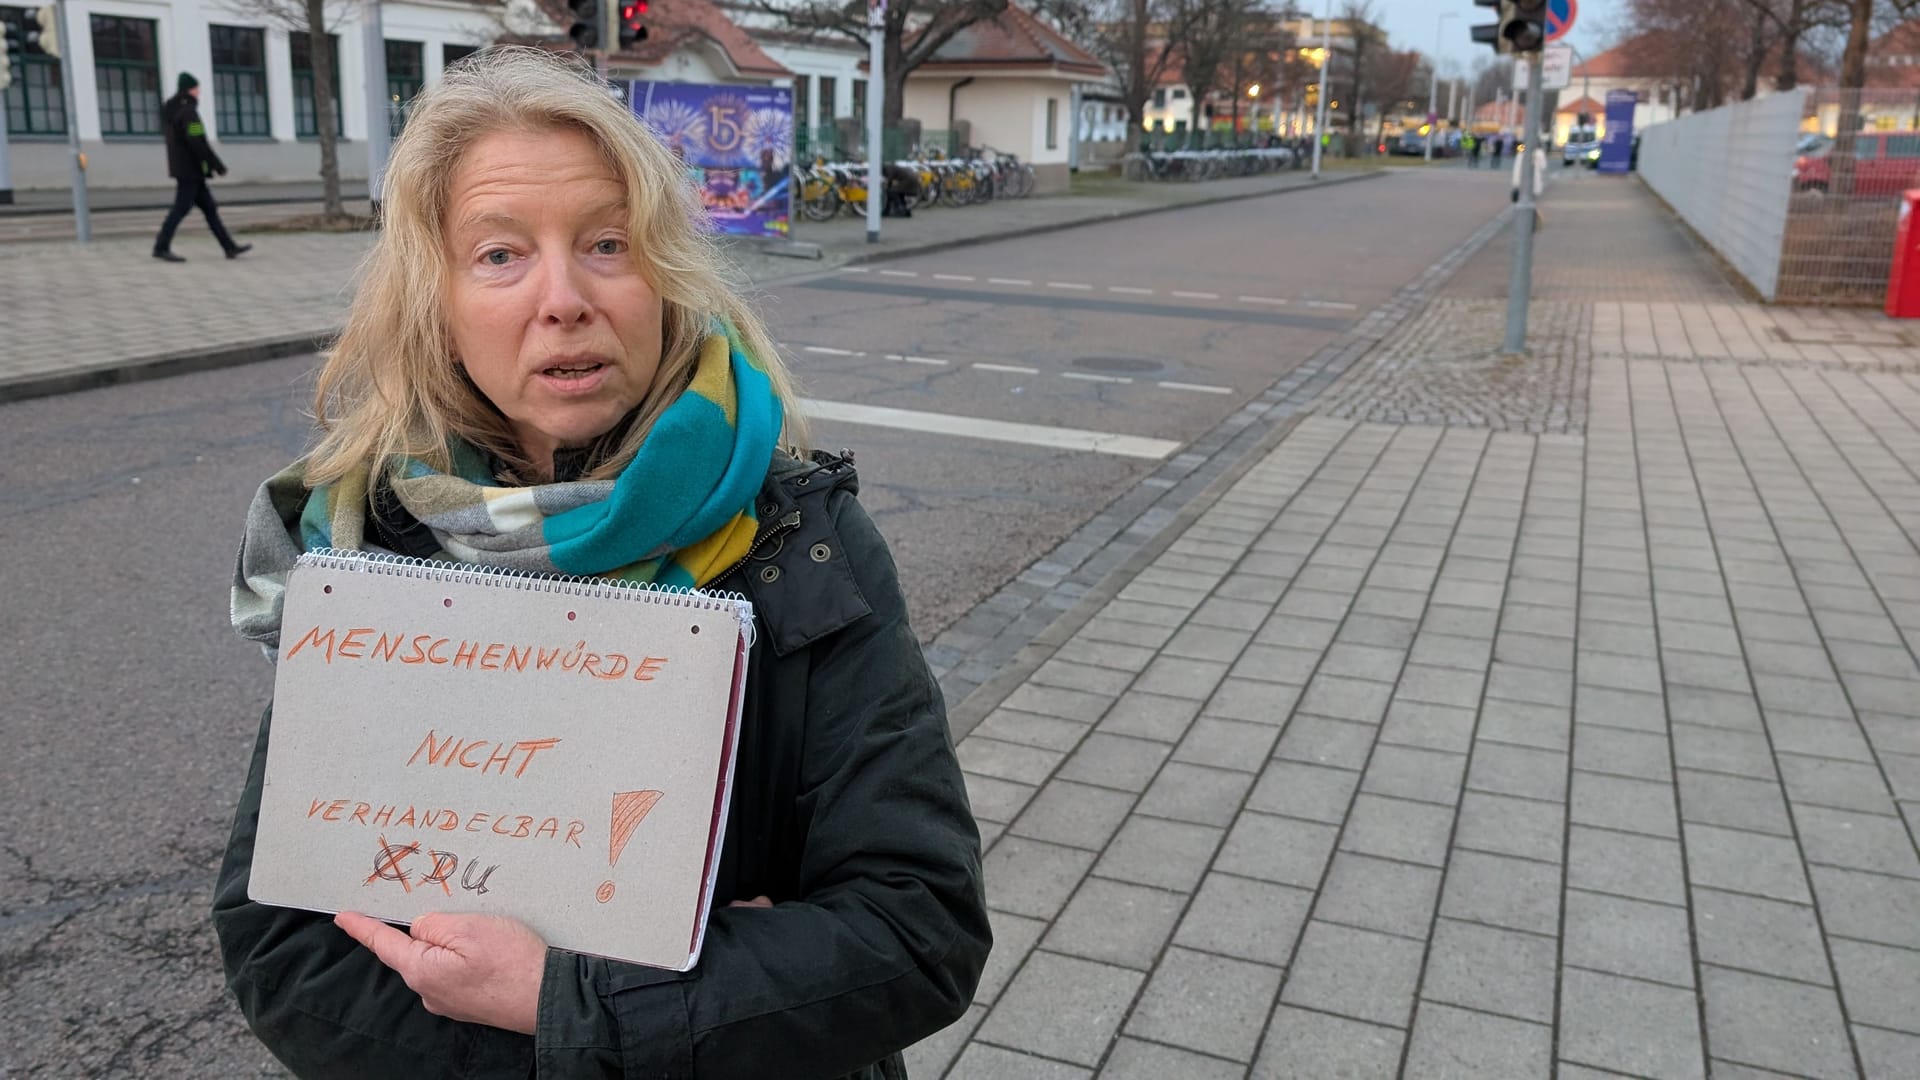 MENSCHENWÜRDE
NICHT
VERHANDELBAR !
CDU
15